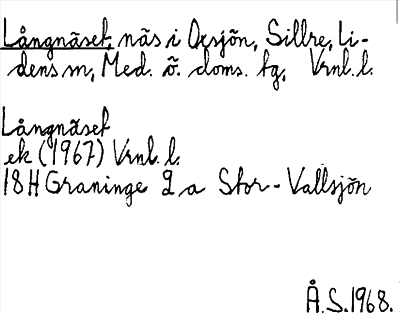 Långnäset, näs i Oxsjön, Sillre, Li-
dens sn, Med. ö. doms. tg, Vrnl. l.
Långnäset
ek (1967) Vrnl. l.
18H Graninge 9 a Stor-Vallsjön
Å.S. 1968.